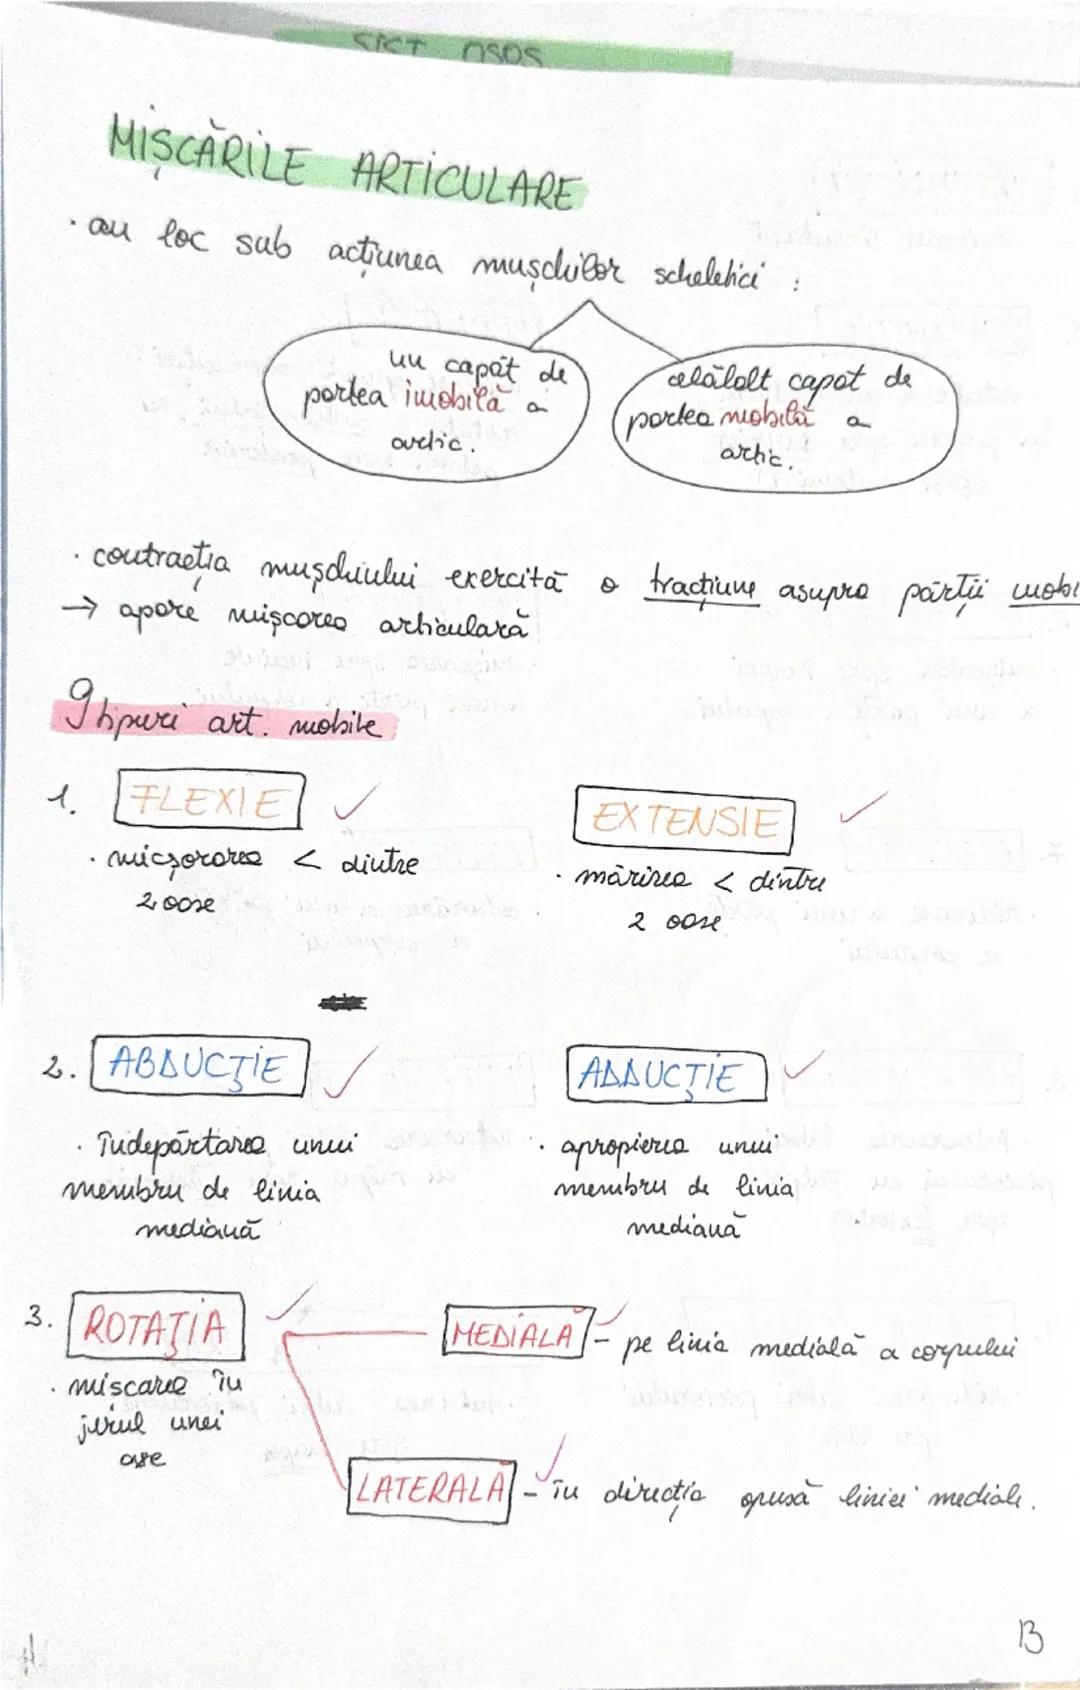 SIST OSOS
MIȘCĂRILE ARTICULARE
· au loc sub acțiunea mușchilor scheletici :
un capăt de
partea imobilă a
artic.
celălalt capăt de
partea mobilă a
artic.
· contracția mușchiului exercită o tracțiune asupra părții mobi
→ apare mișcarea articulară
9 tipuri art. mobile
1. FLEXIE ✓
· micșorarea < dintre
2 oase
EXTENSIE ✓
· mărirea < dintre
2 oase
2. ABDUCȚIE ✓
· îndepărtarea unui
membru de linia
mediană
ADDUCȚIE ✓
· apropierea unui
membru de linia
mediană
3. ROTAȚIA ✓
· mișcarea în
jurul unei
axe
MEDIALĂ ✓ - pe linia medială a corpului
LATERALĂ ✓ - în direcția opusă liniei mediale.
13